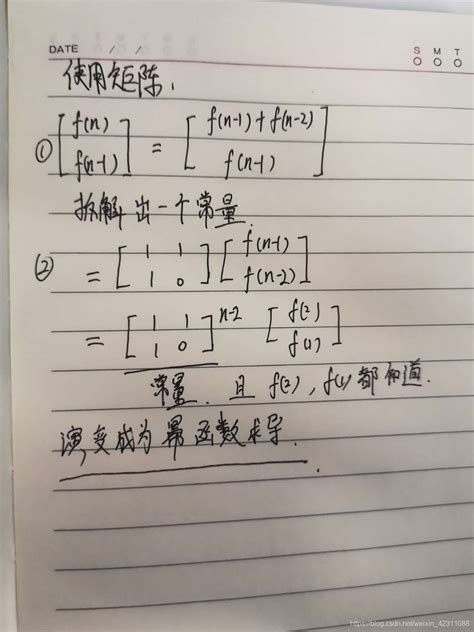 DATE / /
S M T
使用矩阵,
① [f(n) f(n-1)] = [f(n-1)+f(n-2) f(n-1)]
拆解出一个常量
② = [1 1 1 0] [f(n-1) f(n-2)]
= [1 1 1 0]^n-2 [f(2) f(1)]
常量. 且 f(2), f(1) 都知道.
演变成为幂函数求导.
https://blog.csdn.net/weixin_42311088